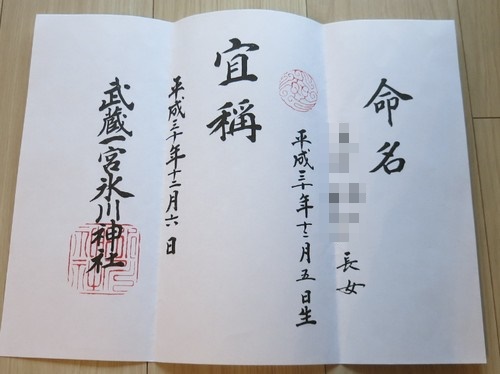 命名
長女
平成三十年十二月五日生
宜稱
平成三十年十二月六日
武蔵一宮氷川神社